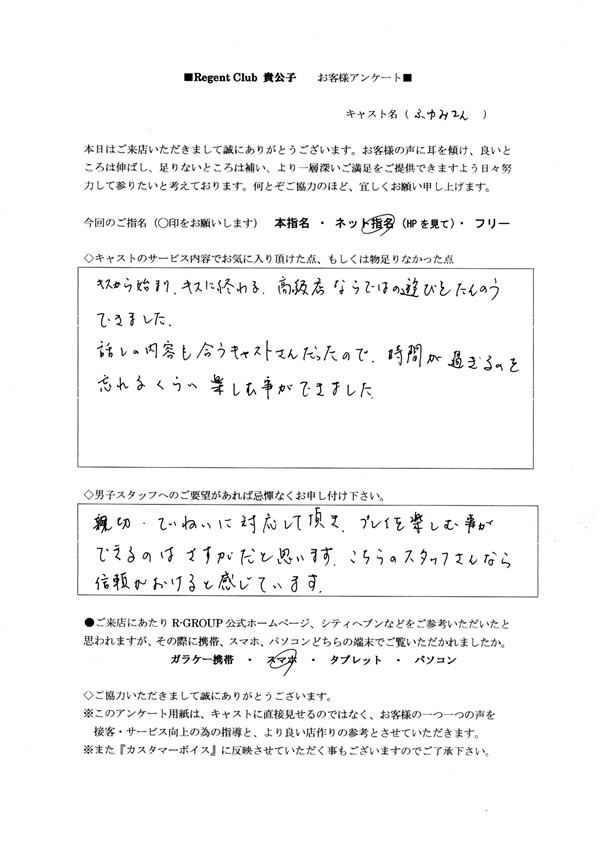 ■Regent Club 貴公子　お客様アンケート■
キャスト名（ ふゆみさん ）
本日はご来店いただきまして誠にありがとうございます。お客様の声に耳を傾け、良いと
ころは伸ばし、足りないところは補い、より一層深いご満足をご提供できますよう日々努
力して参りたいと考えております。何とぞご協力のほど、宜しくお願い申し上げます。
今回のご指名（〇印をお願いします）　本指名 ・ ネット指名（HPを見て）・ フリー
◇キャストのサービス内容でお気に入り頂けた点、もしくは物足りなかった点
キスから始まり、キスに終わる。高級店ならではの遊びをたんのう
できました。
話しの内容も合うキャストさんだったので、時間が過ぎるのを
忘れるくらい楽しむ事ができました。
◇男子スタッフへのご要望があれば忌憚なくお申し付け下さい。
親切・ていねいに対応して頂き、プレイを楽しむ事が
できるのはさすがだと思います。こちらのスタッフさんなら
信頼がおけると感じています。
●ご来店にあたり R-GROUP 公式ホームページ、シティヘブンなどをご参考いただいたと
思われますが、その際に携帯、スマホ、パソコンどちらの端末でご覧いただかれましたか。
ガラケー携帯 ・ スマホ ・ タブレット ・ パソコン
◇ご協力いただきまして誠にありがとうございます。
※このアンケート用紙は、キャストに直接見せるのではなく、お客様の一つ一つの声を
接客・サービス向上の為の指導と、より良い店作りの参考とさせていただきます。
※また『カスタマーボイス』に反映させていただく事もございますのでご了承下さい。